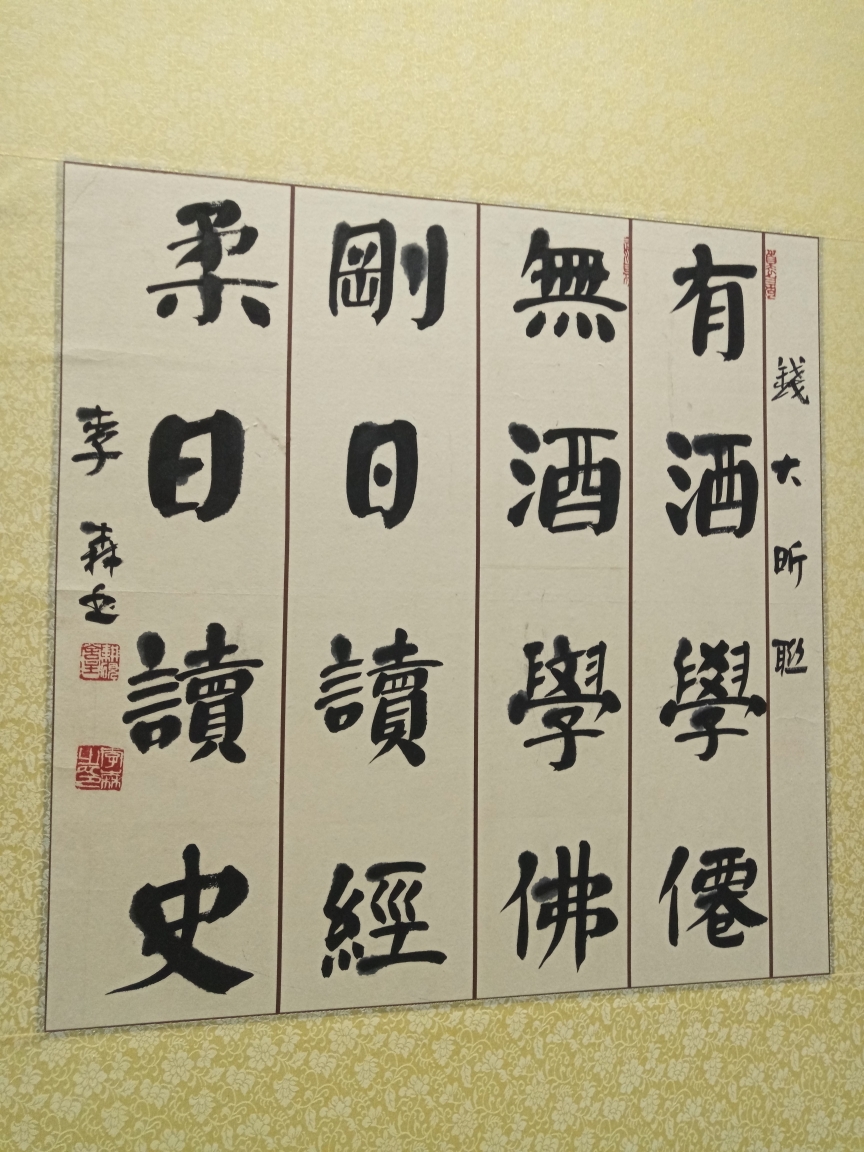 錢大昕聯
有酒學僊
無酒學佛
剛日讀經
柔日讀史
李森書
李森之印